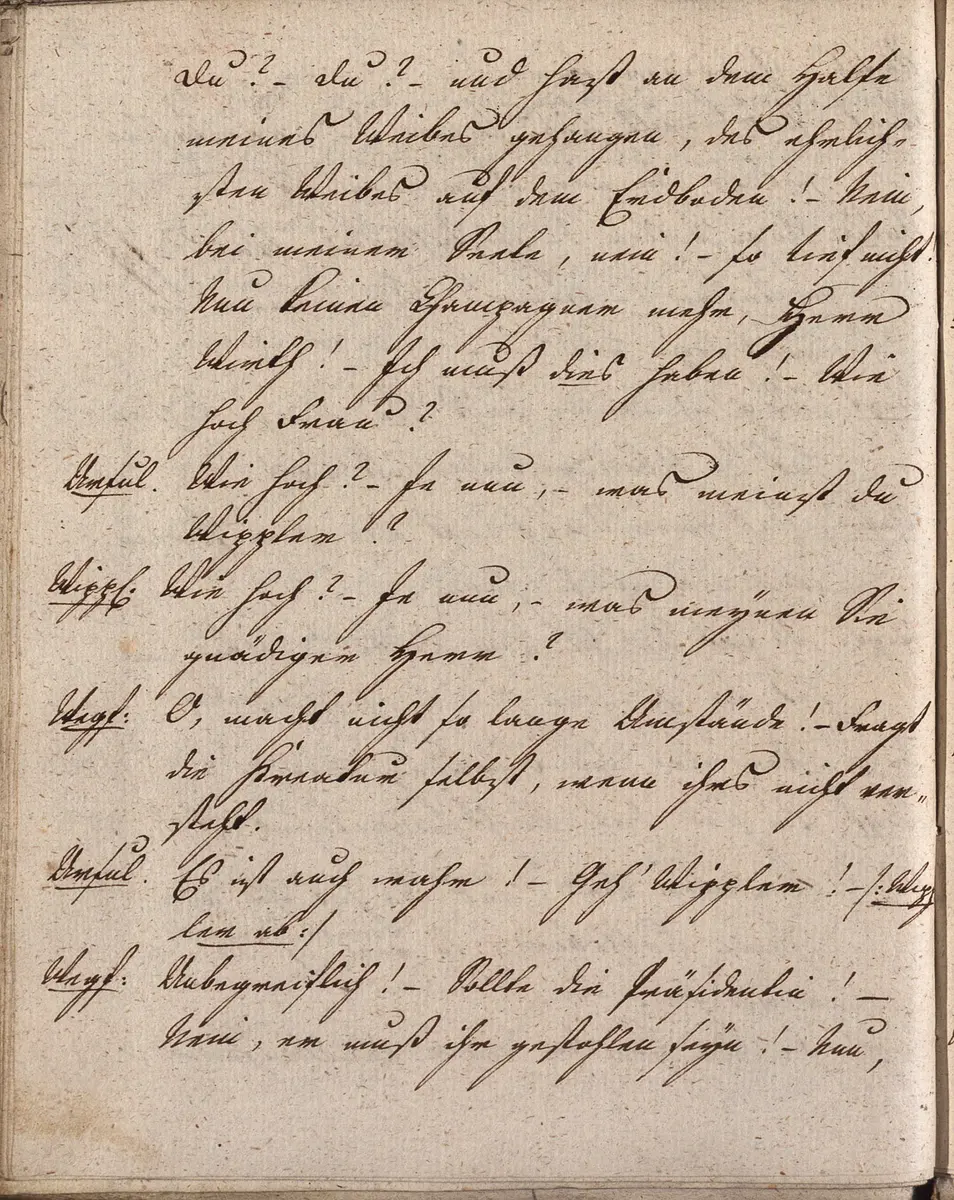 Du? – Du? – und hast an dem Halse
meines Weibes gehangen, des ehrlich-
sten Weibes auf dem Erdboden! – Nein,
bei meiner Seele, nein! – so tief nicht!
Nun keinen Champagner mehr, Herr
Wirth! – Ich muß dies haben! – Wie
hoch Frau?
Ursul. Wie hoch? – Je nun, – was meinst du
Wippler?
Wippl. Wie hoch? – Je nun, – was meynen Sie
gnädiger Herr?
Wegf: O, macht nicht so lange Umstände! – Fragt
die Kreatur selbst, wenn ihrs nicht ver-
steht.
Ursul. Es ist auch wahr! – Geh' Wippler! – /: Wipp
ler ab :/
Wegf: Unbegreiflich! – Sollte die Präsidentin! –
Nein, er muß ihr gestohlen seyn! – Nun,